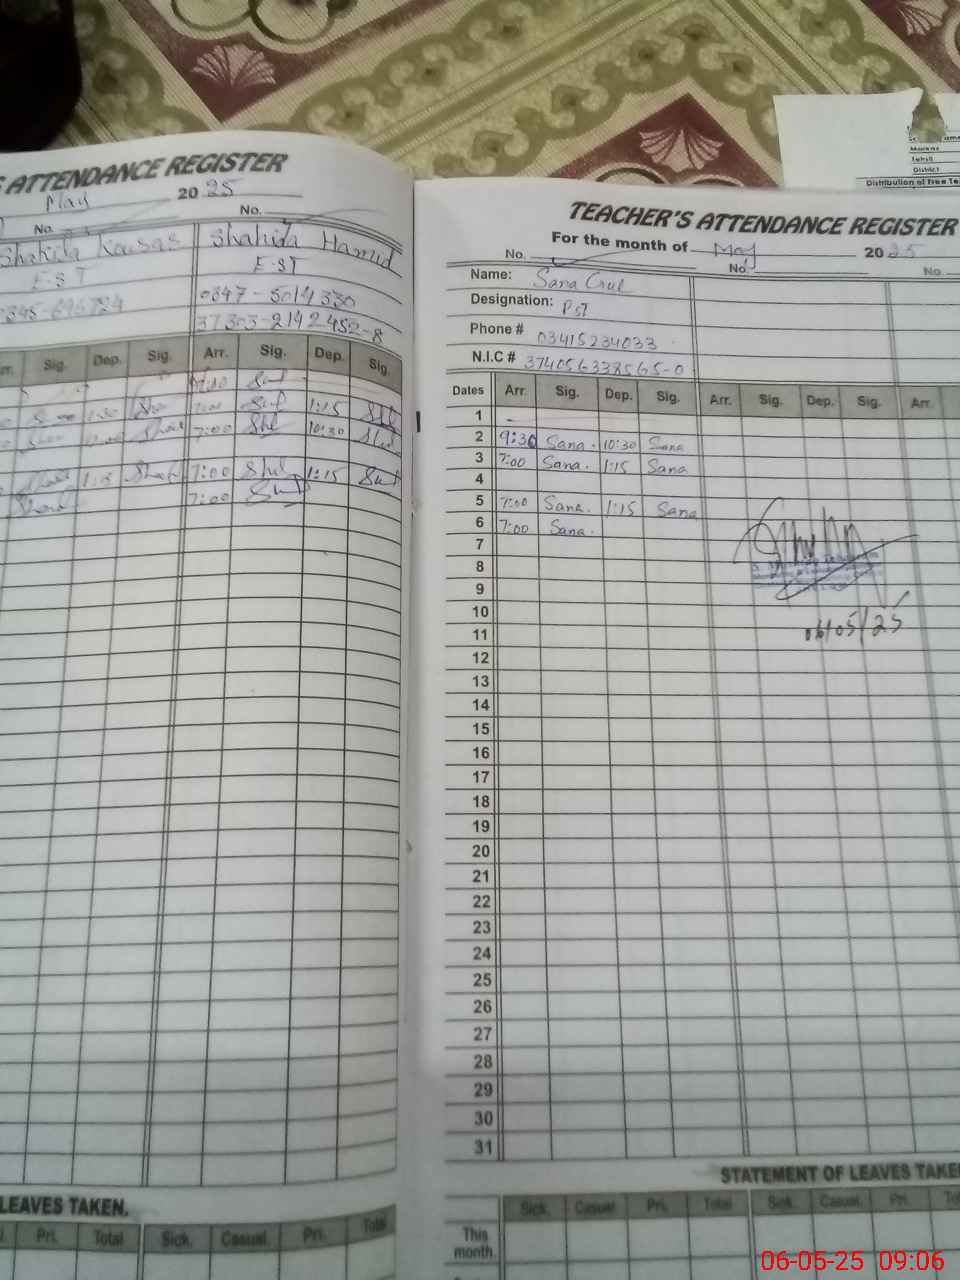 S ATTENDANCE REGISTER
May 2025
No. No.
Shahida Kausas Shahida Hamid
E.ST E.ST
0345-696724 0347-5014330
37303-2142452-8
Arr. Sig. Dep. Sig. Arr. Sig. Dep. Sig.
7:00 1:15
7:00 10:30
7:00 1:15
7:00
LEAVES TAKEN.
Pri. Total Sick. Casual. Pri. Total
TEACHER'S ATTENDANCE REGISTER
For the month of May 2025
No. No. No.
Name: Sana Gul
Designation: PST
Phone # 03415234033
N.I.C # 374056338565-0
Dates Arr. Sig. Dep. Sig. Arr. Sig. Dep. Sig. Arr.
1 -
2 9:30 Sana. 10:30 Sana
3 7:00 Sana. 1:15 Sana
4
5 7:00 Sana. 1:15 Sana
6 7:00 Sana.
7
8
9
10
11
06/05/25
12
13
14
15
16
17
18
19
20
21
22
23
24
25
26
27
28
29
30
31
STATEMENT OF LEAVES TAKE
Sick. Casual. Pri. Total Sick. Casual. Pri.
This month.
Tehsil
District
Distribution of Free Te
06-05-25 09:06